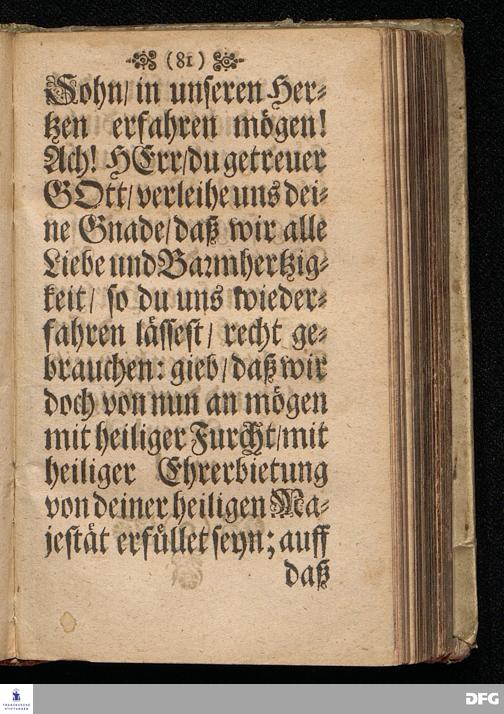 (81)
Sohn/ in unseren Her⸗
tzen erfahren mögen!
Ach! HErr/du getreuer
GOtt/ verleihe uns dei⸗
ne Gnade/daß wir alle
Liebe und Barmhertzig⸗
keit/ so du uns wieder⸗
fahren lässest/ recht ge⸗
brauchen: gieb/daß wir
doch von nun an mögen
mit heiliger Furcht/mit
heiliger Ehrerbietung
von deiner heiligen Ma⸗
jestät erfüllet seyn; auff
daß
FRANCKESCHE
STIFTUNGEN
DFG